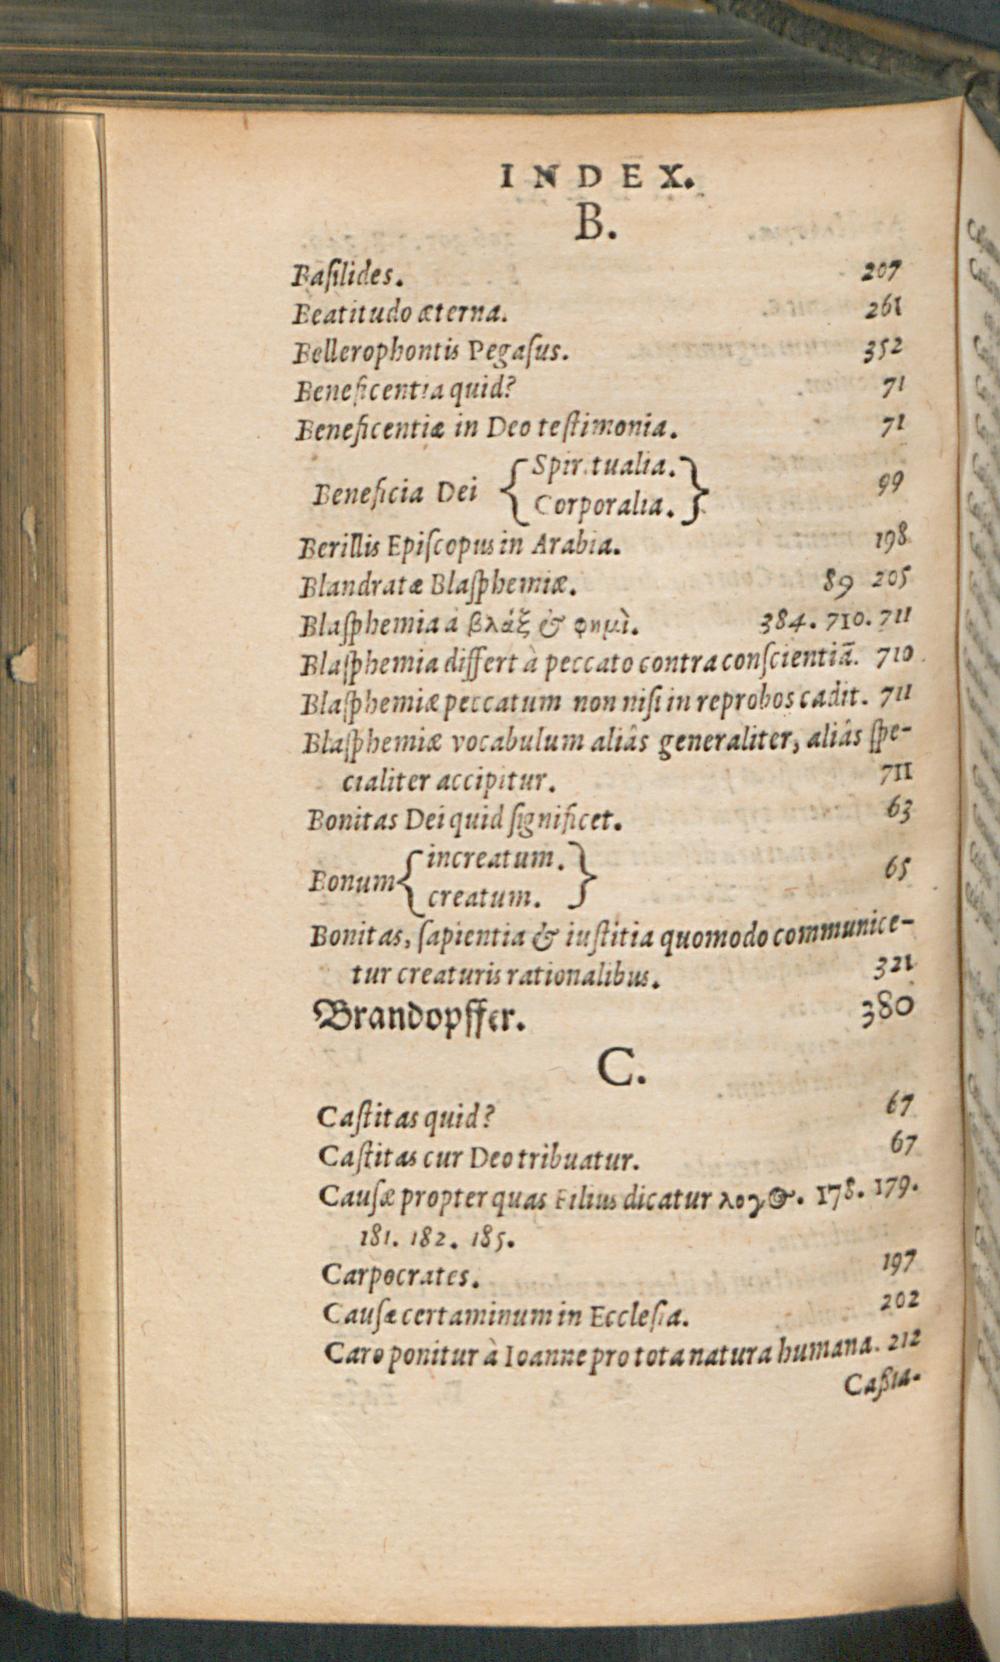 INDEX.
B.
Baſilides. 207
Beatitudo æterna. 261
Bellerophontis Pegaſus. 352
Beneficentia quid? 71
Beneficentiæ in Deo teſtimonia. 71
Spiritualia.
Beneficia Dei 99
Corporalia.
Berillis Epiſcopus in Arabia. 198
Blandratæ Blaſphemiæ. 89 205
Blaſphemia à βλάξ & φημὶ. 384. 710. 711
Blaſphemia differt à peccato contra conſcientiã. 710
Blaſphemiæ peccatum non niſi in reprobos cadit. 711
Blaſphemiæ vocabulum aliâs generaliter, aliâs ſpe-
cialiter accipitur. 711
Bonitas Dei quid ſignificet. 63
increatum.
Bonum 65
creatum.
Bonitas, ſapientia & iuſtitia quomodo communice-
tur creaturis rationalibus. 321
Brandopffer. 380
C.
Caſtitas quid? 67
Caſtitas cur Deo tribuatur. 67
Cauſæ propter quas Filius dicatur λογος. 178. 179.
181. 182. 185.
Carpocrates. 197
Cauſæ certaminum in Eccleſia. 202
Caro ponitur à Ioanne pro tota natura humana. 212
Caßia.